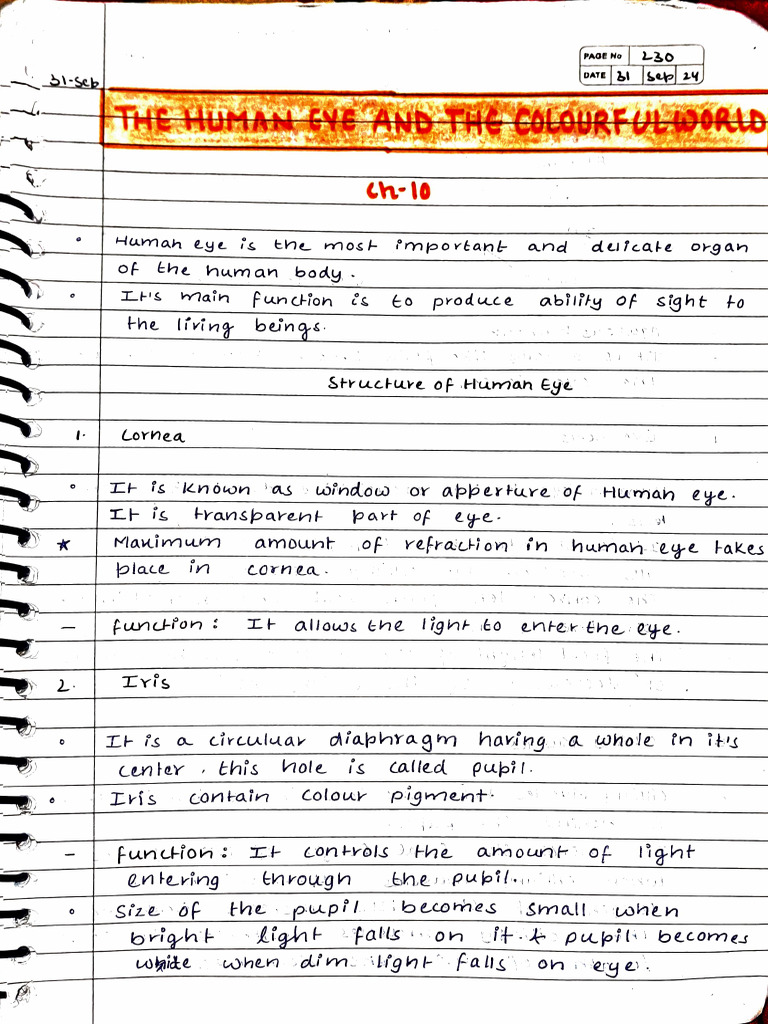 PAGE No 230
DATE 31 Sep 24
31-Seb
THE HUMAN EYE AND THE COLOURFUL WORLD
Ch-10
° Human eye is the most important and delicate organ
of the human body.
° It's main function is to produce ability of sight to
the living beings.
Structure of Human Eye
1. Cornea
° It is known as window or apperture of Human eye.
It is transparent part of eye.
* Maximum amount of refraction in human eye takes
place in cornea.
– function : It allows the light to enter the eye.
2. Iris
° It is a circuluar diaphragm having a whole in it's
center, this hole is called pupil.
° Iris contain colour pigment.
– function : It controls the amount of light
entering through the pupil.
° Size of the pupil becomes small when
bright light falls on it & pupil becomes
when dim light falls on eye.